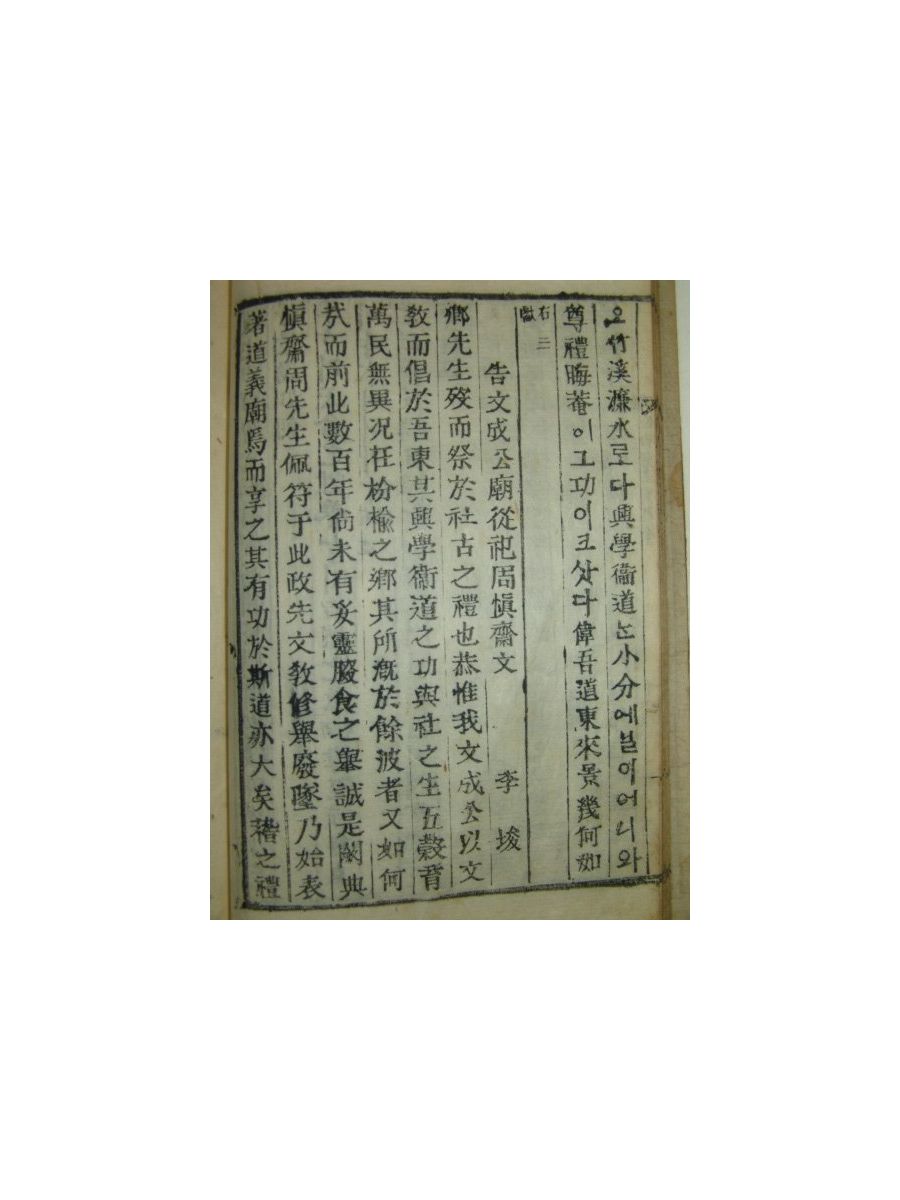 오竹溪濂水로다興學衞道는小分에닐이어니와
尊禮晦菴이그功이크샷다偉吾道東來景幾何如
右二
告文成公廟從祀周愼齋文　李埈
鄕先生歿而祭於社古之禮也恭惟我文成公以文
敎而倡於吾東其興學衞道之功與社之生五穀育
萬民無異况在枌楡之鄕其所漑於餘波者又如何
㢤而前此數百年尙未有妥靈腏食之擧誠是闕典
愼齋周先生佩符于此政先文敎修擧廢墜乃始表
著道義廟焉而享之其有功於斯道亦大矣稽之禮